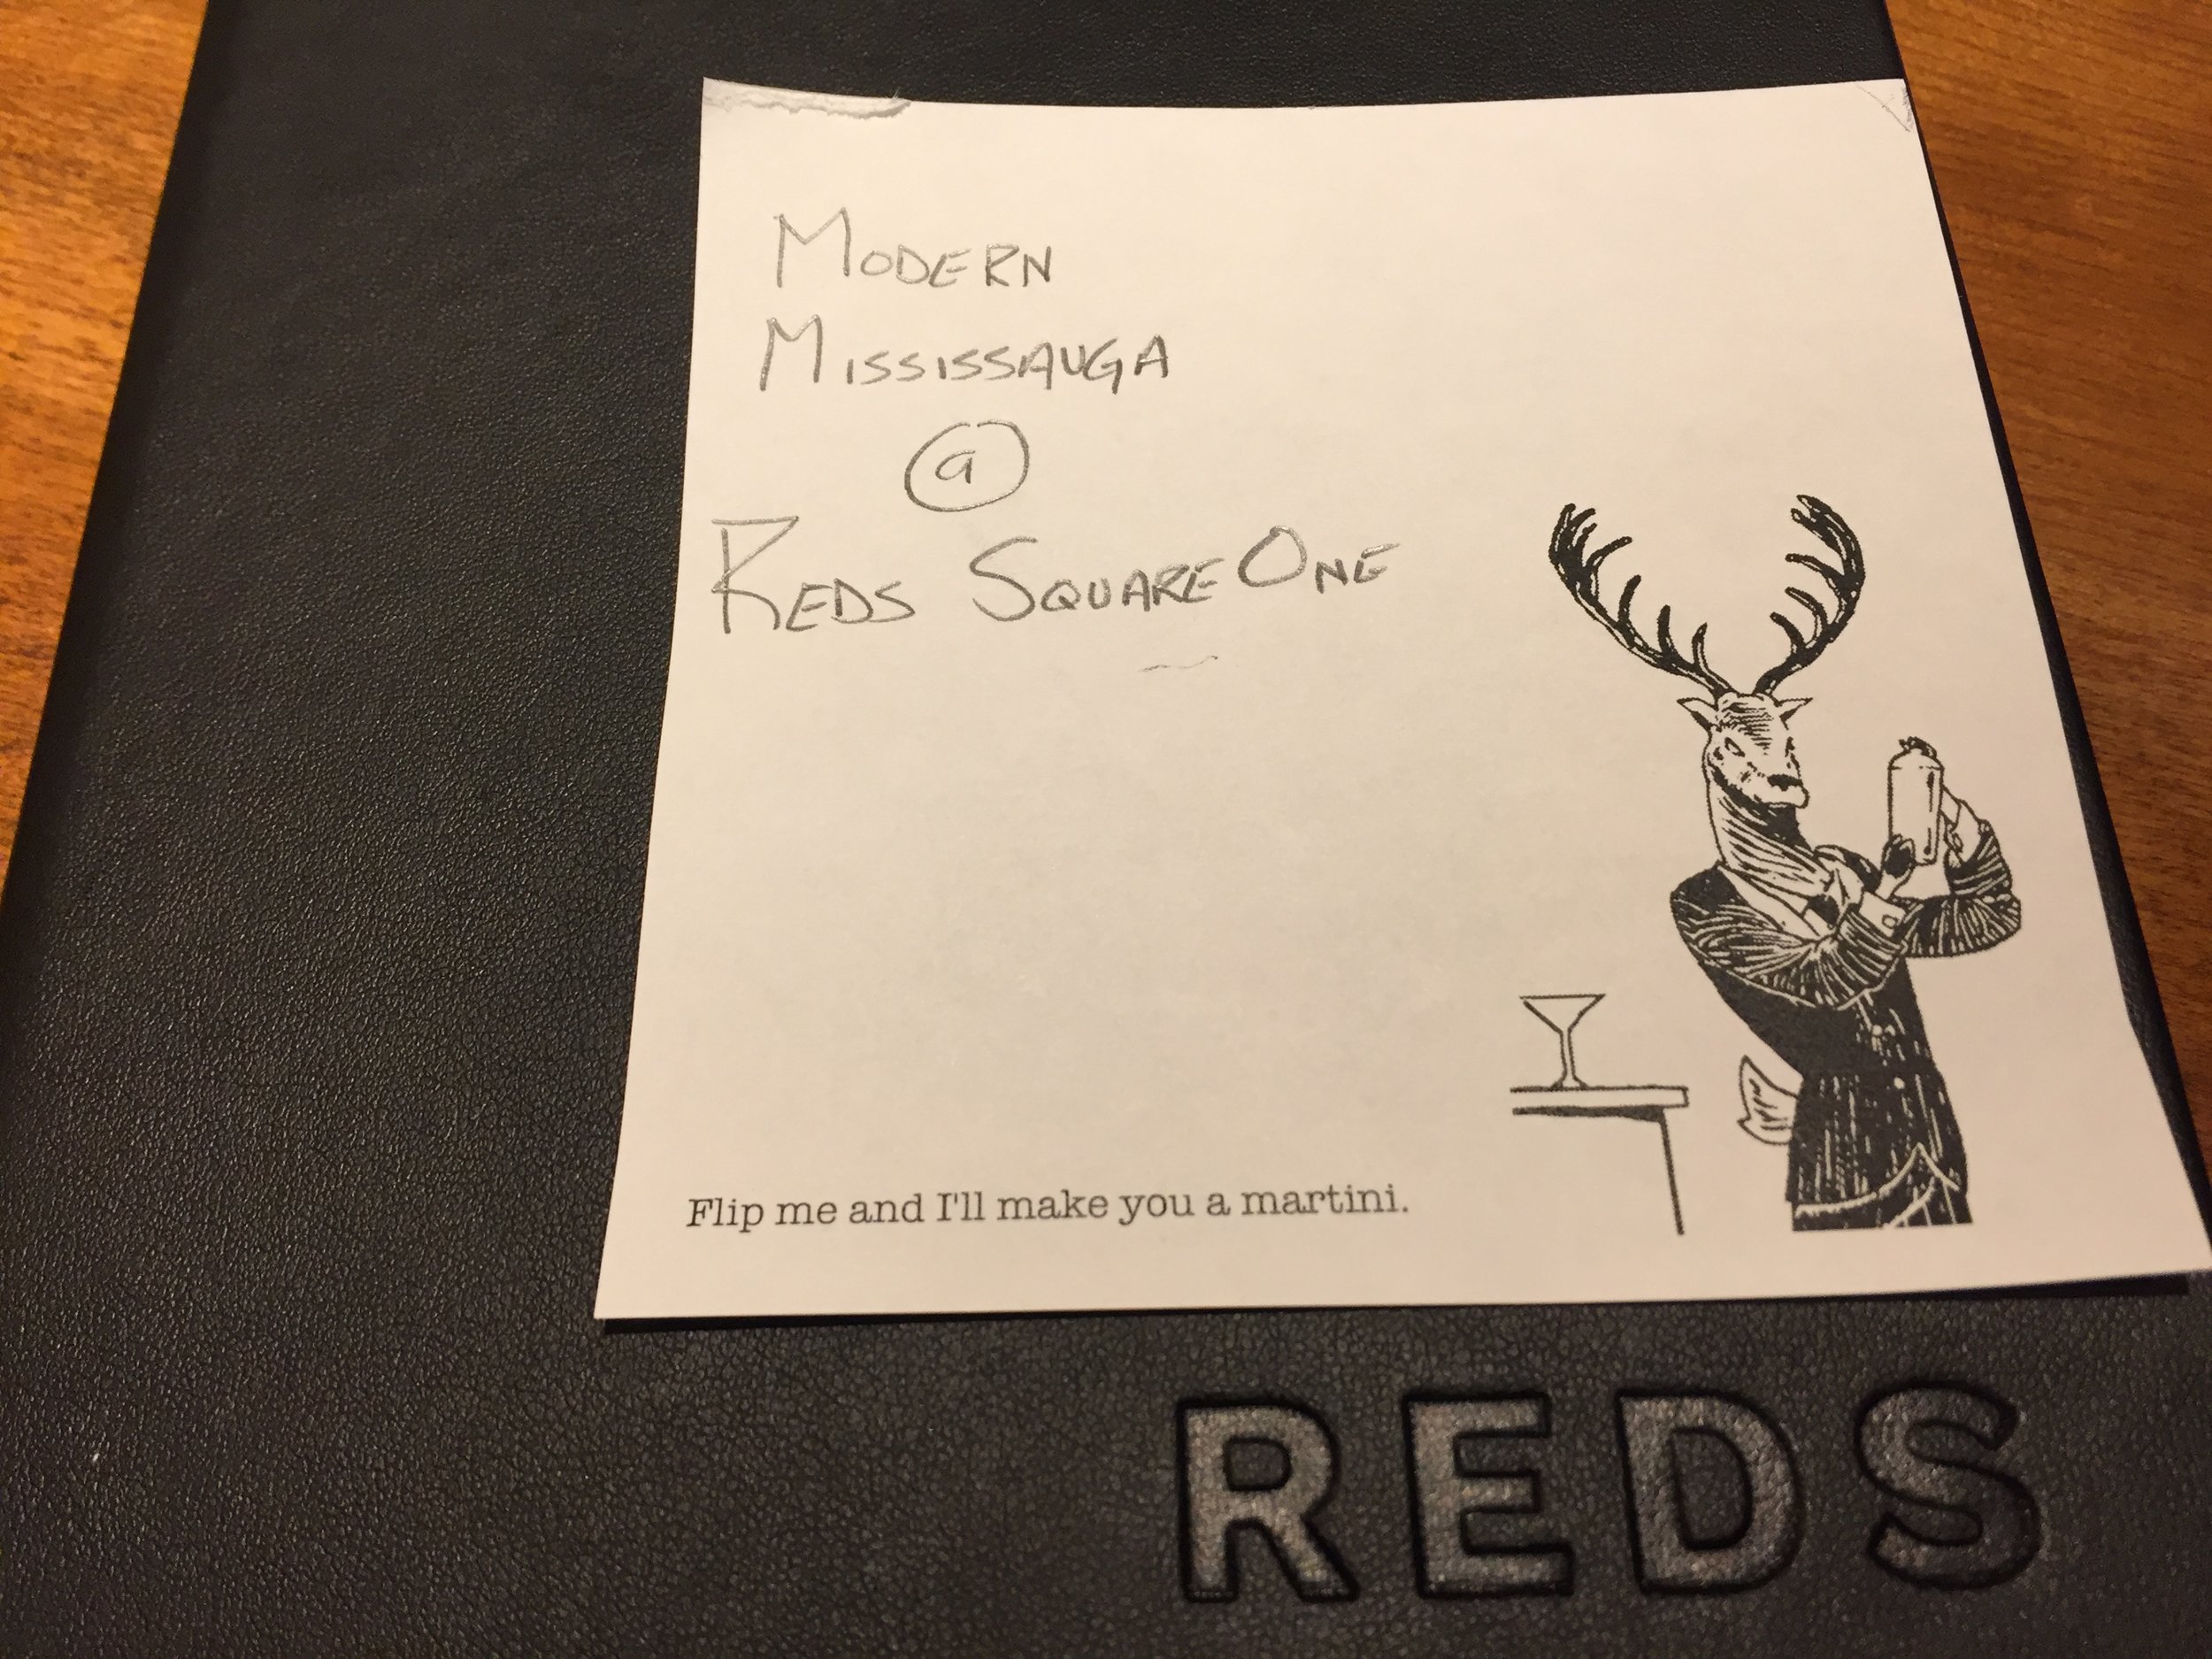 MODERN
MISSISSAUGA
@
REDS SQUARE ONE
Flip me and I'll make you a martini.
REDS